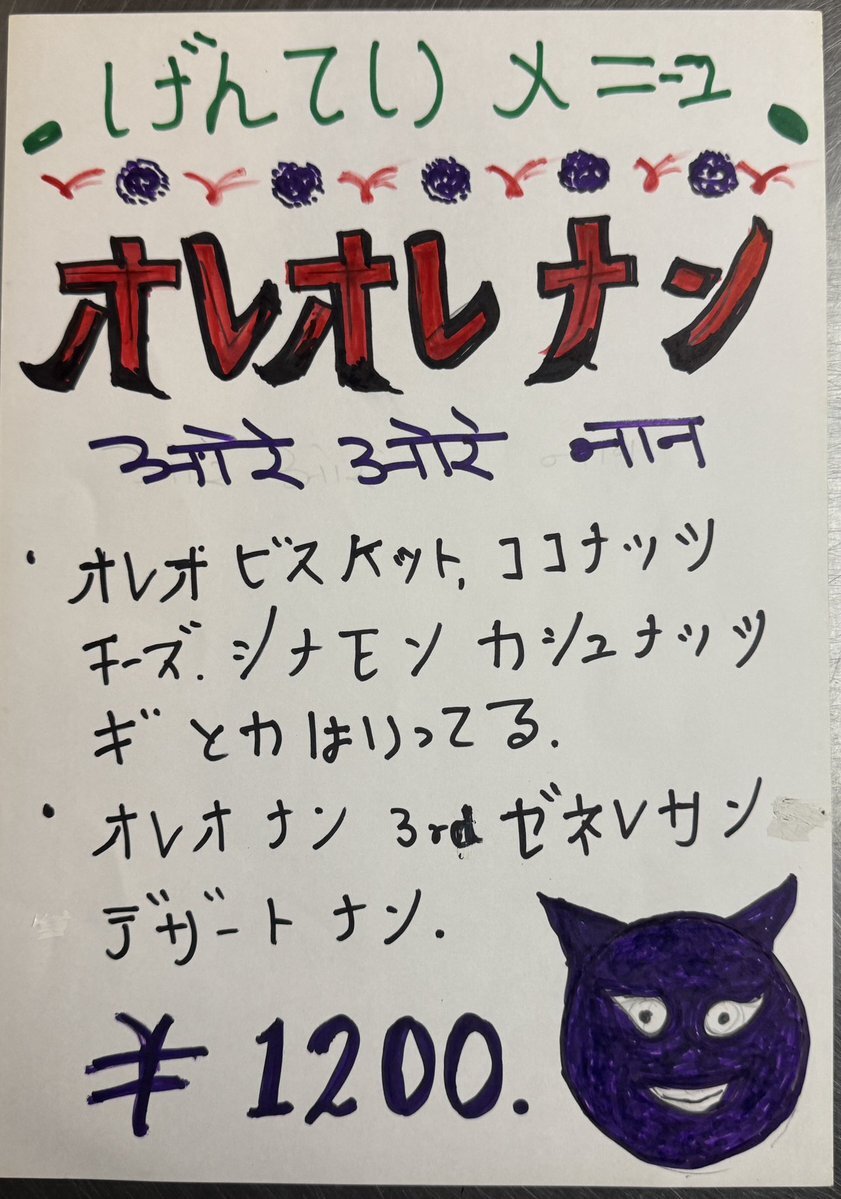 げんてい メニュ
オレオレ ナン
ओरे ओरे नान
・オレオ ビスケット, ココナッツ
チーズ. シナモン カシュナッツ
ギ とか はいってる.
・オレオ ナン 3rd ゼネレサン
デザート ナン.
¥ 1200.